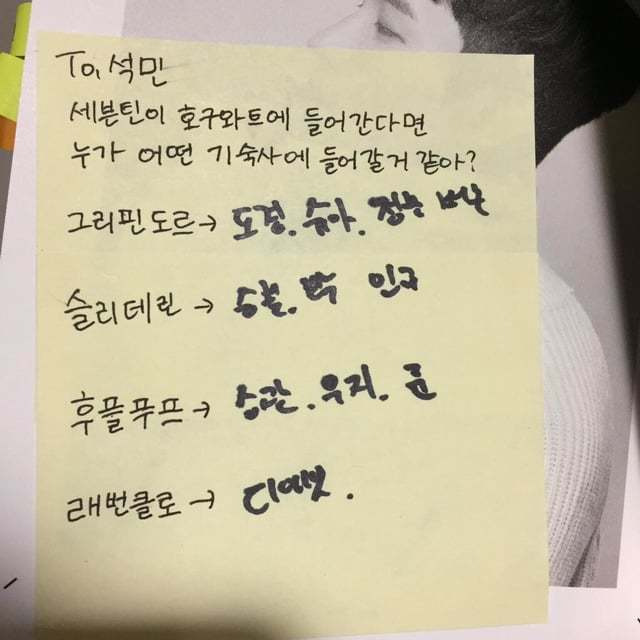 To. 석민
세븐틴이 호구와트에 들어간다면
누가 어떤 기숙사에 들어갈거 같아?
그리핀도르→ 도겸. 슈아. 정한 버논
슬리데린 → 승철. 민규
후플푸프→ 승관. 우지. 준
래번클로→ 디에잇.